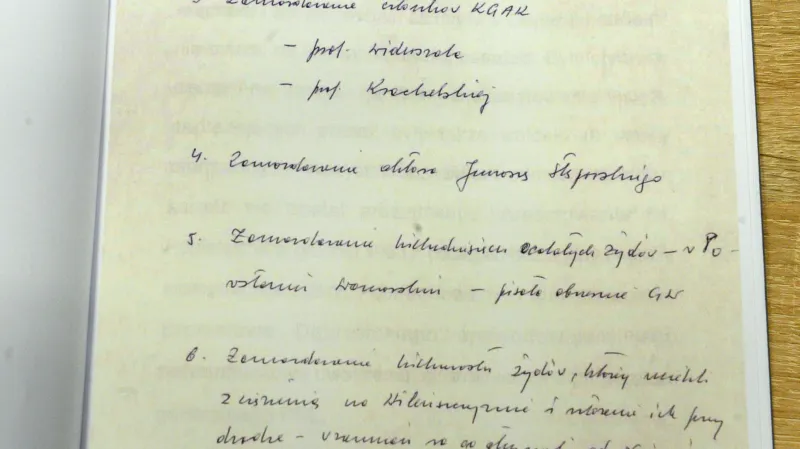 3. Zamordowanie członków KGAK
– prof. Widerszala
– prof. Krachelskiej
4. Zamordowanie aktora Junoszę Stępowskiego
5. Zamordowanie kilkudziesięciu ocalałych Żydów – w Po-
wstaniu Warszawskim – pisała obszernie GW
6. Zamordowanie kilkunastu Żydów, którzy uciekli
z więzienia na Wileńszczyźnie i złożenie ich przy
drodze –